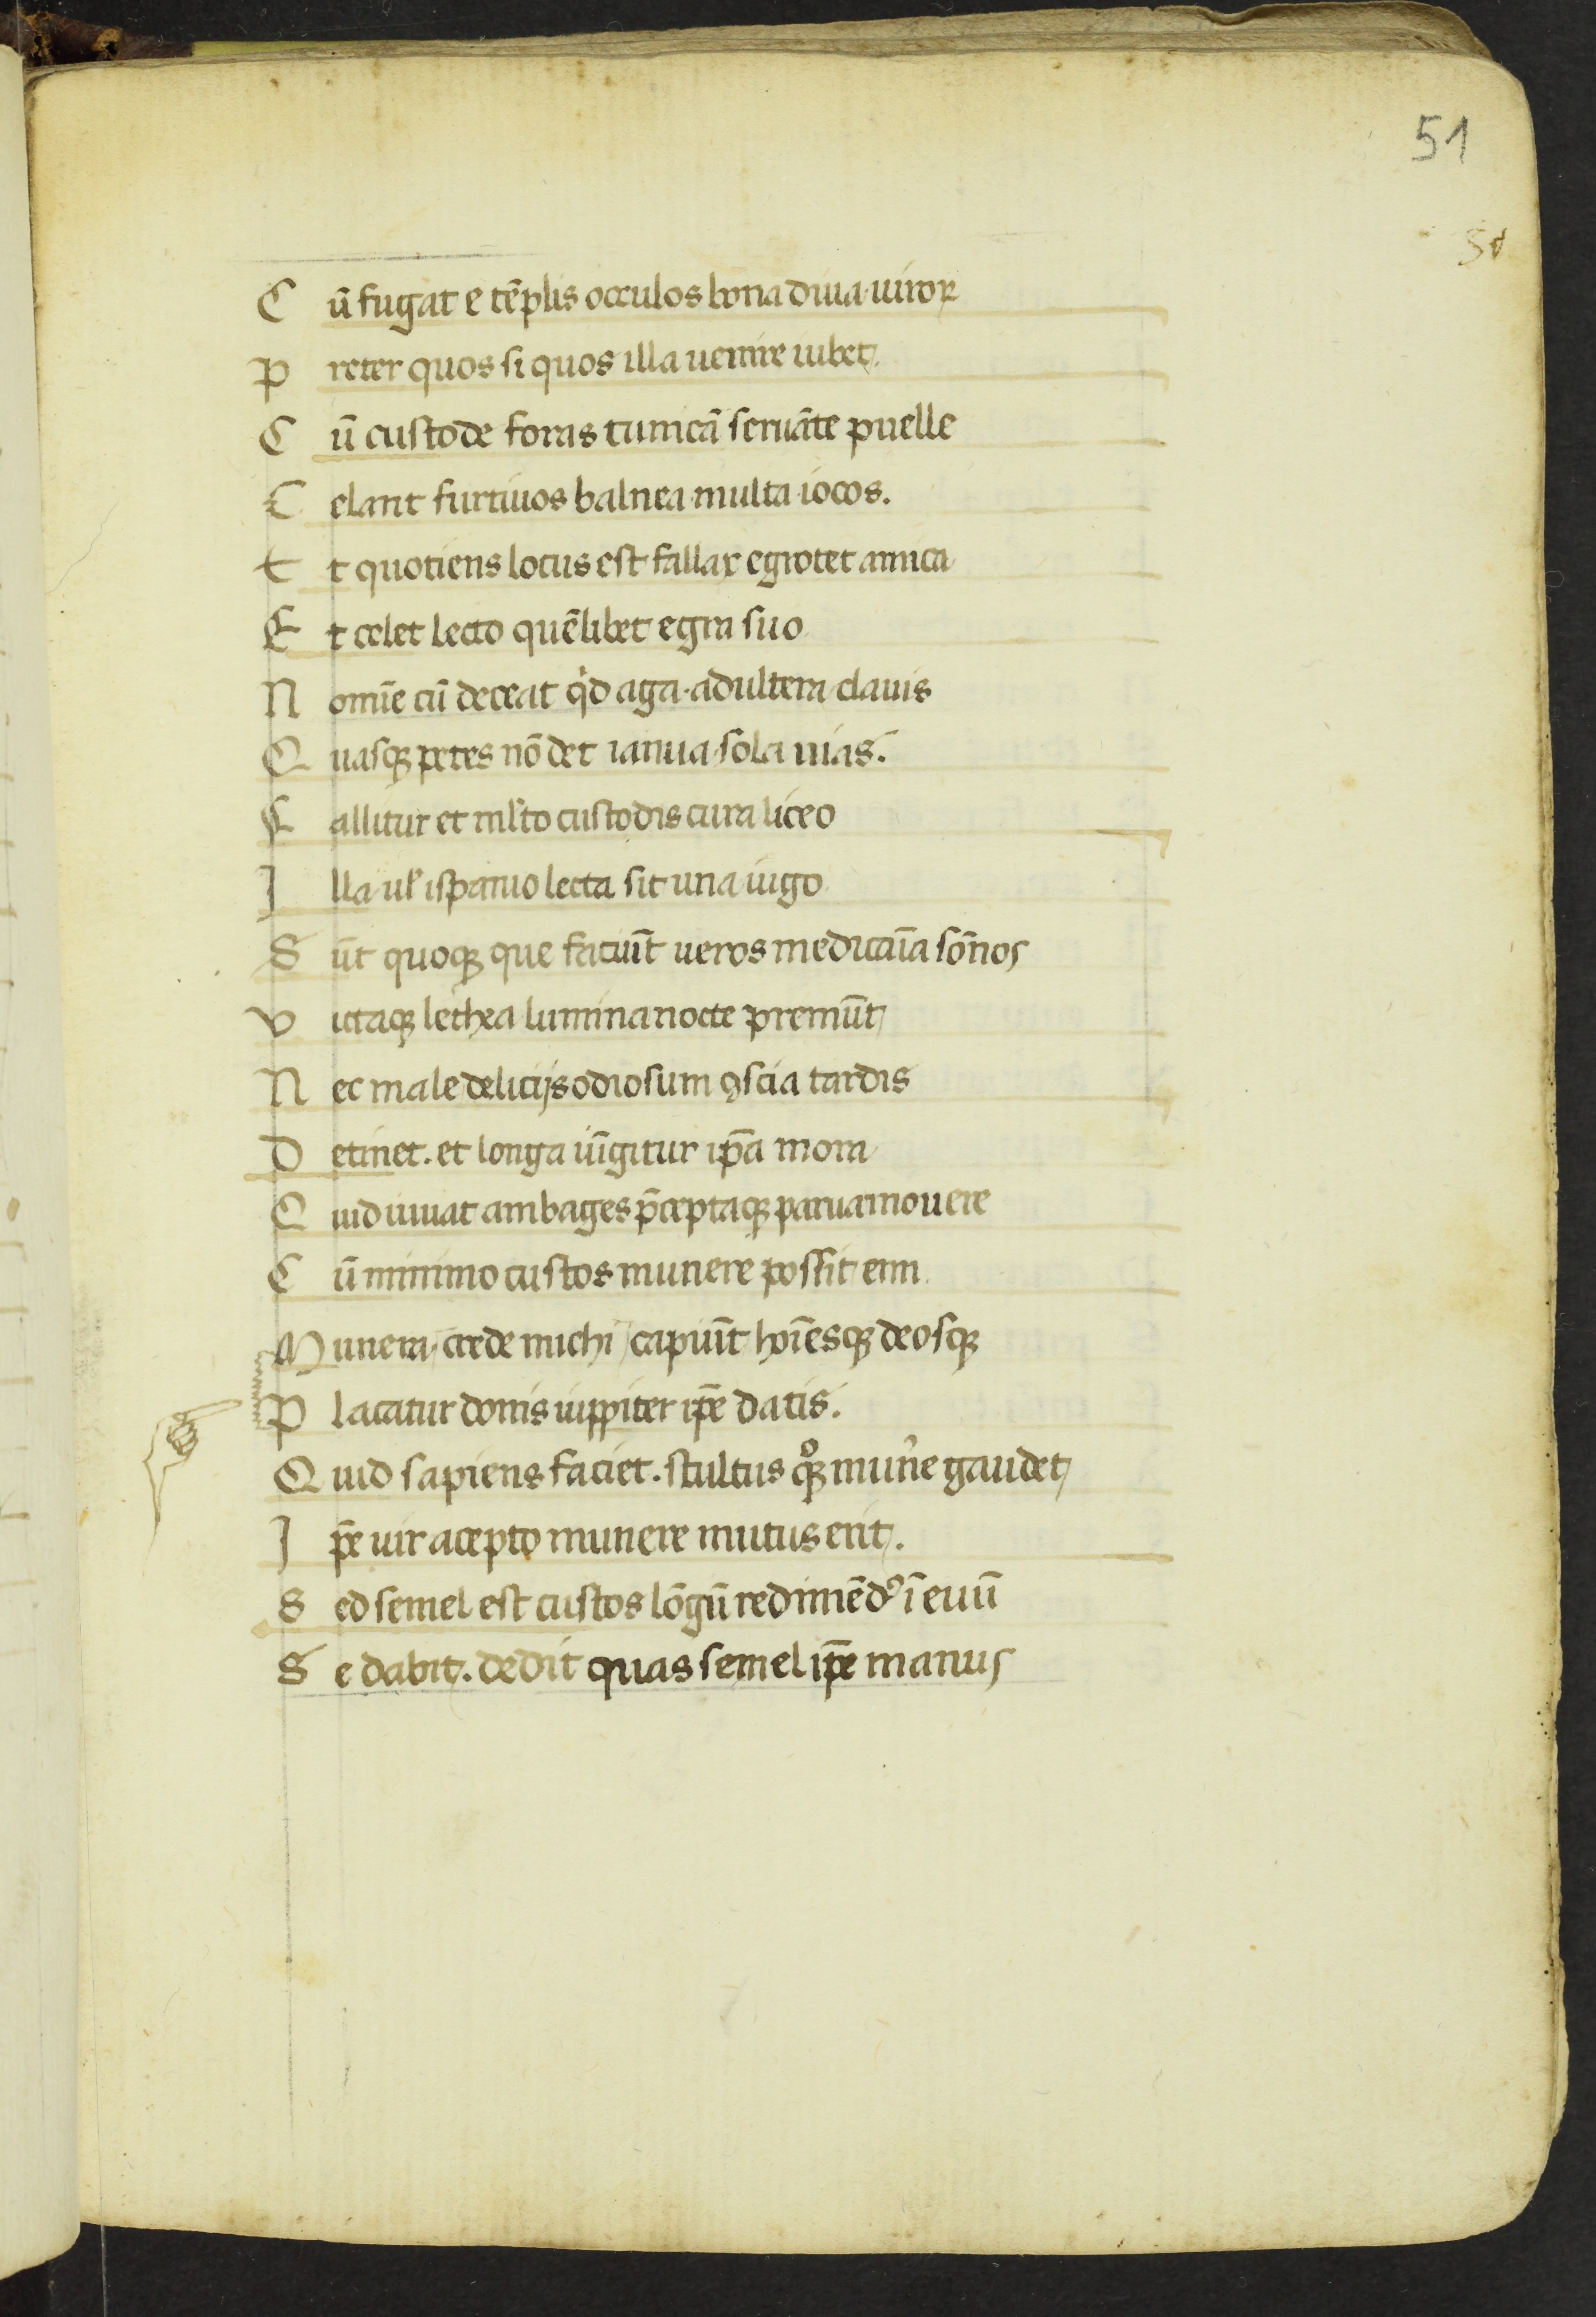 51
51
Cũ fugat e tẽplis occulos bona diua uiroꝝ
Preter quos si quos illa uenire iubet.
Cũ custode foras tunicã seruãte puelle
Celant furtiuos balnea multa iocos.
Et quotiens locus est fallax egrotet amica
Et celet lecto quẽlibet egra suo
Nomĩe cũ deceat qͥd aga. adultera clauis
Quasqꝫ petes nõ det ianua sola uias.
Fallitur et ml̃to custodis cura liceo
Illa ul̃ ispanio lecta sit una iugo
Sũt quoqꝫ que faciũt ueros medicaĩa sõnos
Victaqꝫ lethea lumina nocte premũt
Nec male delicijs odiosum ꝯscia tardis
Detinet. et longa iũgitur ip̃a mora
Quid iuuat ambages p̃ceptaqꝫ parua mouere
Cũ minimo custos munere possit emi
Munera crede michi capiũt hoĩesqꝫ deosqꝫ
Placatur donis iuppiter ip̃e datis.
Quid sapiens faciet. stultus qͦꝫ mun̄e gaudet
Ip̃e uir acepto munere mutus erit.
Sed semel est custos lõgũ redimẽdꝰ ĩ euũ
Se dabit. dedit quas semel ip̃e manus